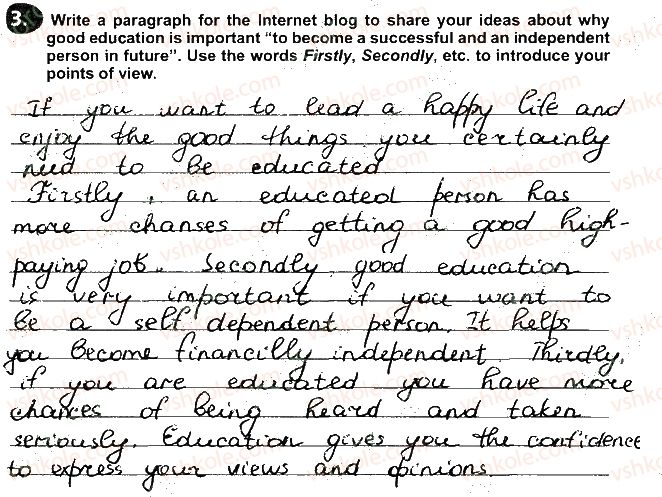 3. Write a paragraph for the Internet blog to share your ideas about why
good education is important "to become a successful and an independent
person in future". Use the words Firstly, Secondly, etc. to introduce your
points of view.
If you want to lead a happy life and
enjoy the good things you certainly
need to be educated
Firstly, an educated person has
more chanses of getting a good high-
paying job. Secondly good education
is very important if you want to
be a self dependent person. It helps
you become financilly independent. Thirdly,
if you are educated you have more
chances of being heard and taken
seriously. Education gives you the confidence
to express your views and opinions.